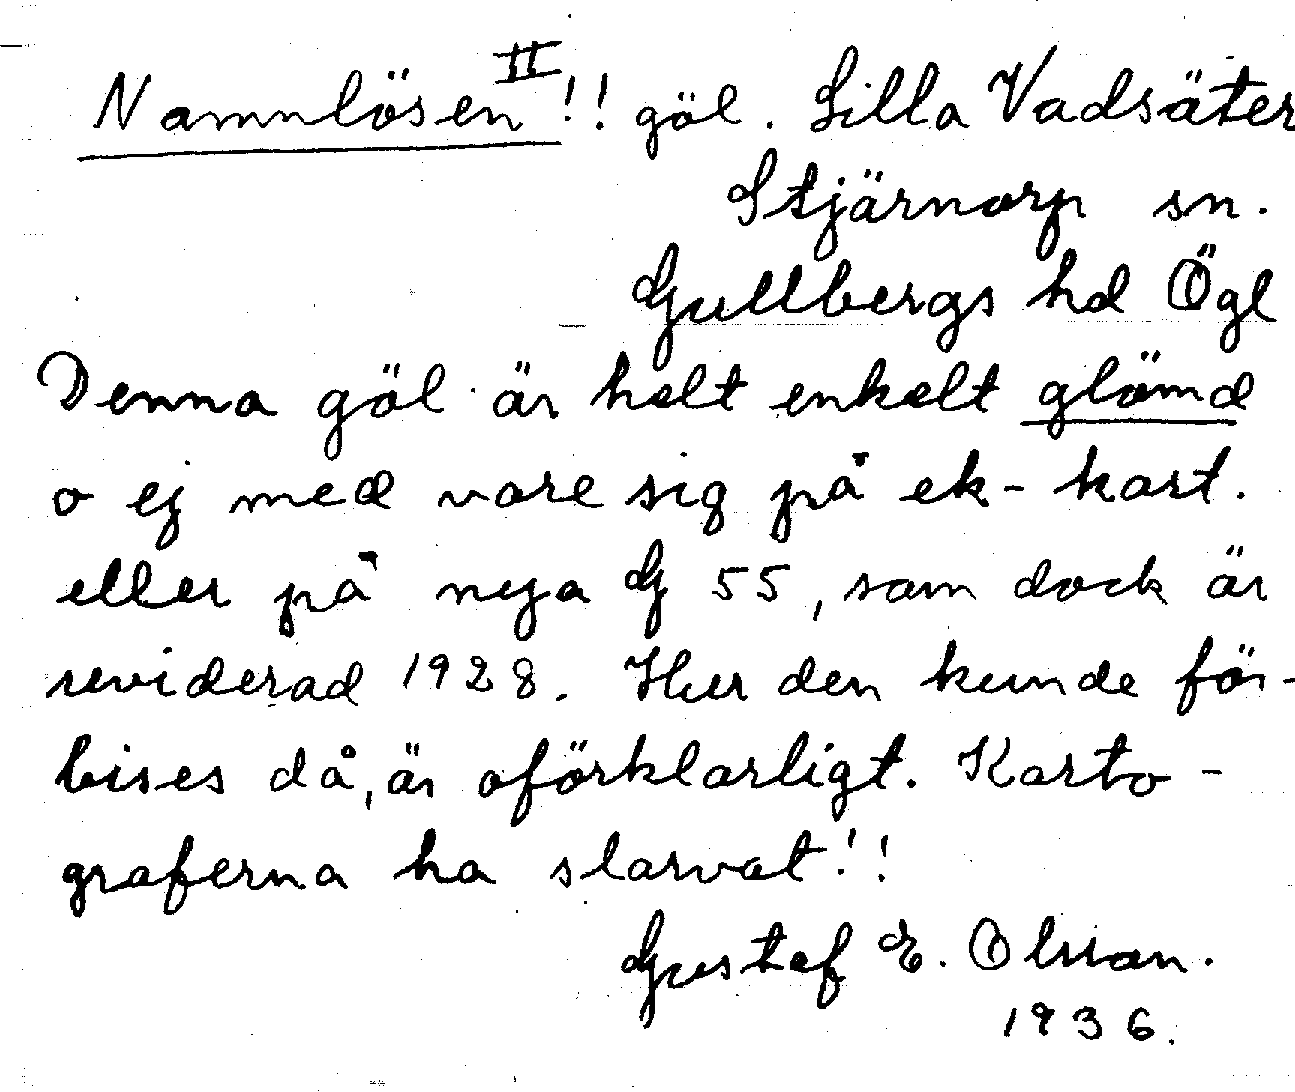 Namnlösen II!! göl. Lilla Vadsäter
Stjärnorp sn.
Gullbergs hd Ögl
Denna göl är helt enkelt glömd
o ej med vare sig på ek-kart.
eller på nya G 55, som dock är
reviderad 1928. Hur den kunde för-
bises då, är oförklarligt. Karto-
graferna ha slarvat!!
Gustaf E. Olsson.
1936.